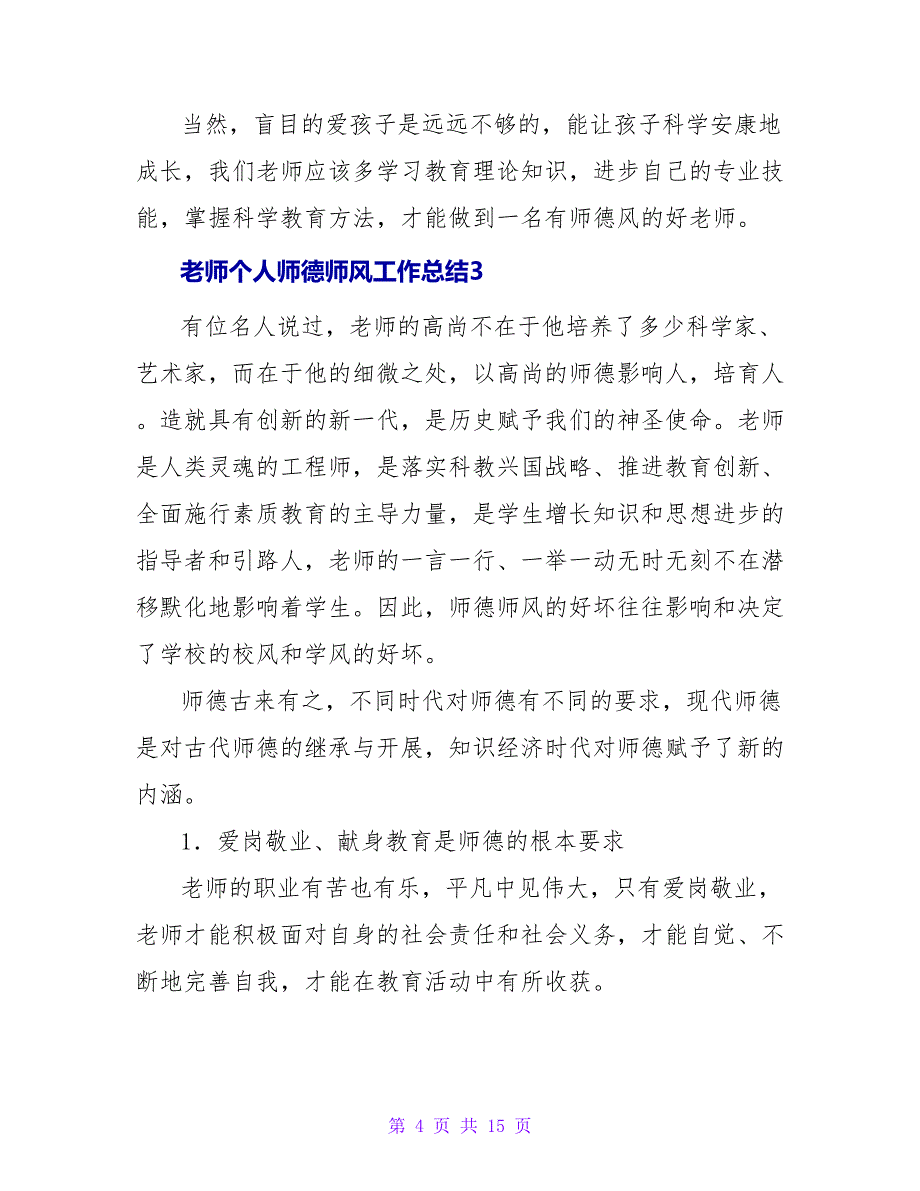 当然，盲目的爱孩子是远远不够的，能让孩子科学安康地
成长，我们老师应该多学习教育理论知识，进步自己的专业技
能，掌握科学教育方法，才能做到一名有师德风的好老师。
老师个人师德师风工作总结3
有位名人说过，老师的高尚不在于他培养了多少科学家、
艺术家，而在于他的细微之处，以高尚的师德影响人，培育人
。造就具有创新的新一代，是历史赋予我们的神圣使命。老师
是人类灵魂的工程师，是落实科教兴国战略、推进教育创新、
全面施行素质教育的主导力量，是学生增长知识和思想进步的
指导者和引路人，老师的一言一行、一举一动无时无刻不在潜
移默化地影响着学生。因此，师德师风的好坏往往影响和决定
了学校的校风和学风的好坏。
师德古来有之，不同时代对师德有不同的要求，现代师德
是对古代师德的继承与开展，知识经济时代对师德赋予了新的
内涵。
1．爱岗敬业、献身教育是师德的根本要求
老师的职业有苦也有乐，平凡中见伟大，只有爱岗敬业，
老师才能积极面对自身的社会责任和社会义务，才能自觉、不
断地完善自我，才能在教育活动中有所收获。
第 4 页 共 15 页